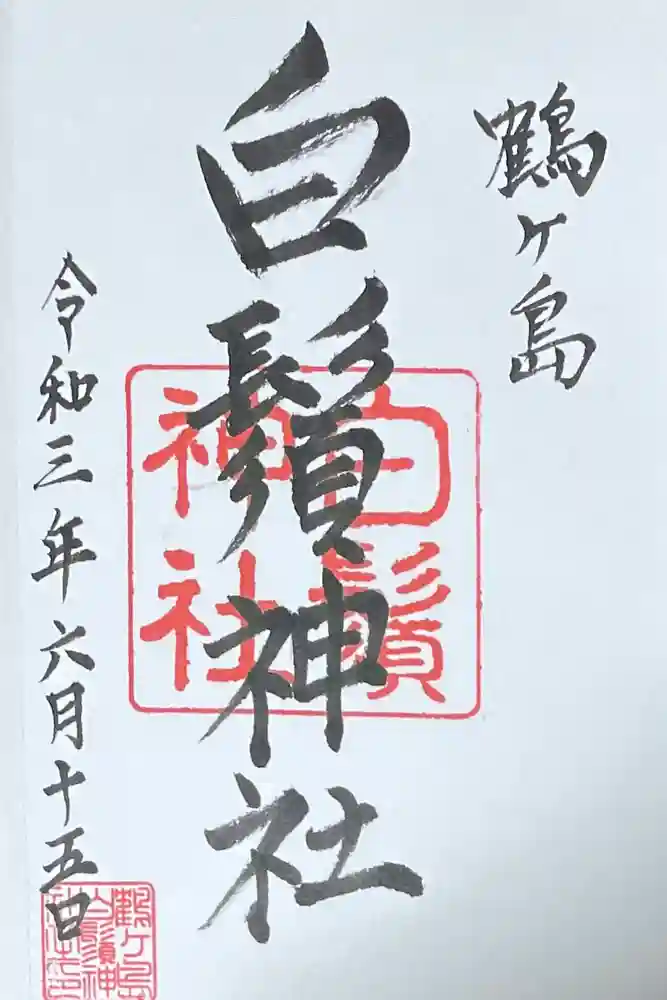 鶴ヶ島
白鬚神社
白鬚
神社
令和三年六月十五日
鶴ヶ島
白鬚神
社之印